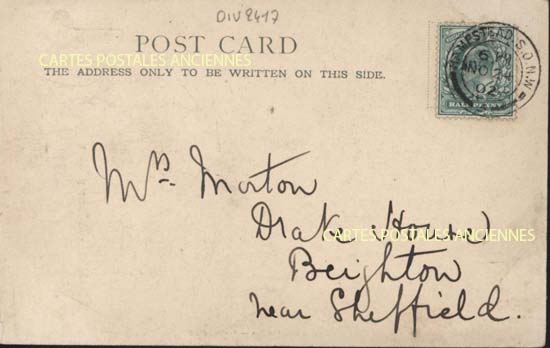 DIV2417
POST CARD
CARTES POSTALES ANCIENNES
THE ADDRESS ONLY TO BE WRITTEN ON THIS SIDE.
HAMPSTEAD S.O. N.W
6 PM
NO 24
02
HALFPENNY
Mrs. Morton
Drake House
CARTES POSTALES ANCIENNES
Beighton
near Sheffield.